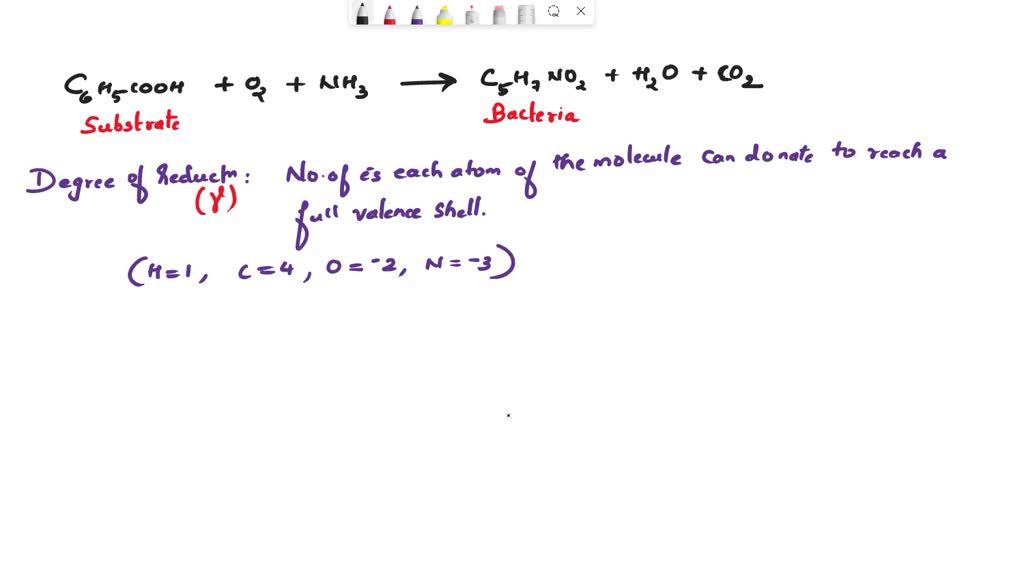 C₆H₅COOH + O₂ + NH₃ ⟶ C₅H₇NO₂ + H₂O + CO₂
Substrate Bacteria
Degree of Reductn: No. of es each atom of the molecule can donate to reach a
(γ) full valence shell.
(H=1, C=4, O=-2, N=-3)